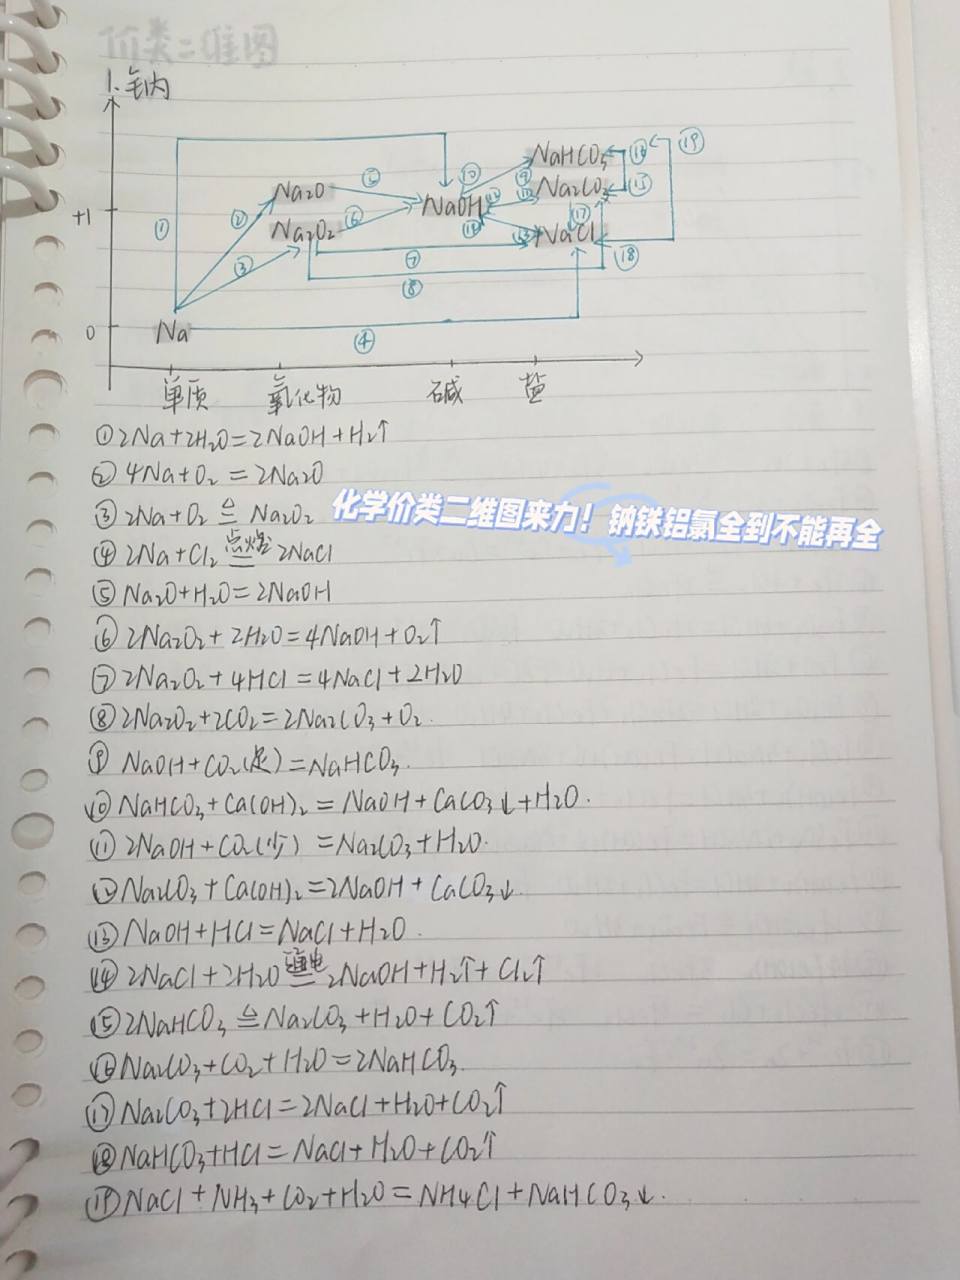 价类二维图
1.钠
Na2O ⑤ NaHCO3 ⑯ ⑲
+1 ① ② Na2O2 ⑥ NaOH ⑩ ⑨ ⑪ ⑫ Na2CO3 ⑮
③ ⑦ ⑭ ⑬ ⑰ NaCl ⑱
⑧
0 Na ④
单质 氧化物 碱 盐
①2Na+2H2O=2NaOH+H2↑
②4Na+O2=2Na2O
③2Na+O2≜Na2O2
化学价类二维图来力!钠铁铝氯全到不能再全
④2Na+Cl2 点燃= 2NaCl
⑤Na2O+H2O=2NaOH
⑥2Na2O2+2H2O=4NaOH+O2↑
⑦2Na2O2+4HCl=4NaCl+2H2O
⑧2Na2O2+2CO2=2Na2CO3+O2.
⑨NaOH+CO2(足)=NaHCO3.
⑩NaHCO3+Ca(OH)2=NaOH+CaCO3↓+H2O.
⑪2NaOH+CO2(少)=Na2CO3+H2O.
⑫Na2CO3+Ca(OH)2=2NaOH+CaCO3↓.
⑬NaOH+HCl=NaCl+H2O.
⑭2NaCl+2H2O 通电= 2NaOH+H2↑+Cl2↑
⑮2NaHCO3≜Na2CO3+H2O+CO2↑
⑯Na2CO3+CO2+H2O=2NaHCO3.
⑰Na2CO3+2HCl=2NaCl+H2O+CO2↑
⑱NaHCO3+HCl=NaCl+H2O+CO2↑
⑲NaCl+NH3+CO2+H2O=NH4Cl+NaHCO3↓.